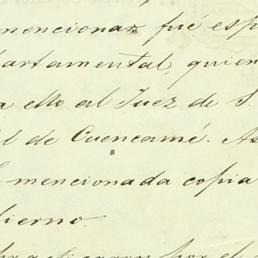 mencionar fué esp
artamental, quien
a ello al Juez de S.
l de Cuencamé. As
mencionada copia
ierno.
por el